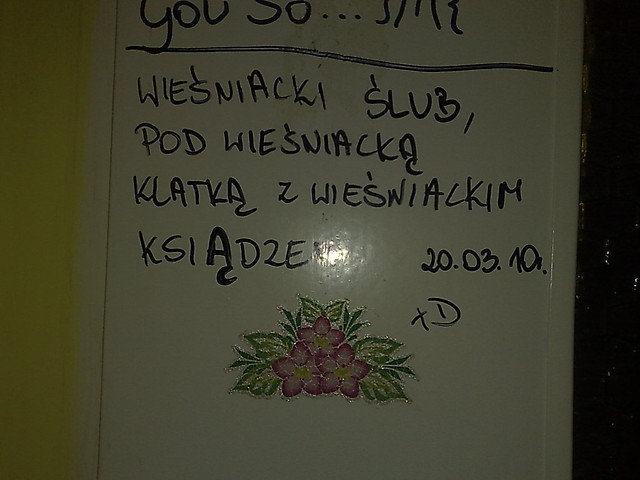 YOU SO...
WIEŚNIACKI ŚLUB,
POD WIEŚNIACKĄ
KLATKĄ Z WIEŚNIACKIM
KSIĄDZE
20.03.10r.
xD